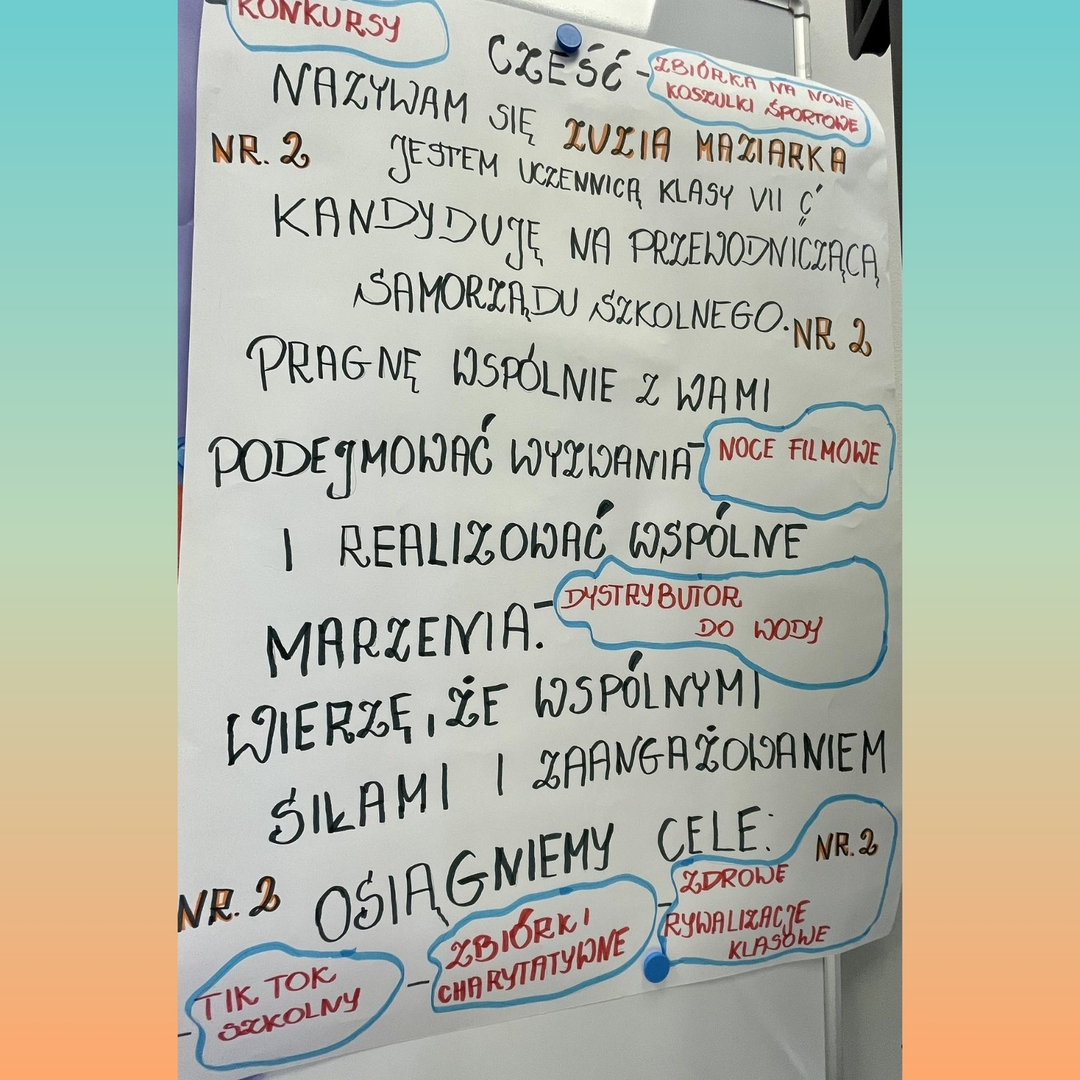 KONKURSY
CZEŚĆ -
ZBIÓRKA NA NOWE
KOSZULKI ŚPORTOWE
NAZYWAM SIĘ ZUZIA MAZIARKA
NR. 2
JESTEM UCZENNICĄ KLASY VII Ć
KANDYDUJĘ NA PRZEWODNICZĄCĄ
SAMORZĄDU SZKOLNEGO.
NR 2
PRAGNĘ WSPÓLNIE Z WAMI
PODEJMOWAĆ WYZWANIA -
NOCE FILMOWE
I REALIZOWAĆ WSPÓLNE
MARZENIA. -
DYSTRYBUTOR
DO WODY
WIERZĘ, ŻE WSPÓLNYMI
SIŁAMI I ZAANGAŻOWANIEM
OSIĄGNIEMY CELE:
NR. 2
NR. 2
- ZDROWE
RYWALIZACJE
KLASOWE
- ZBIÓRKI
CHARYTATYWNE
- TIK TOK
SZKOLNY